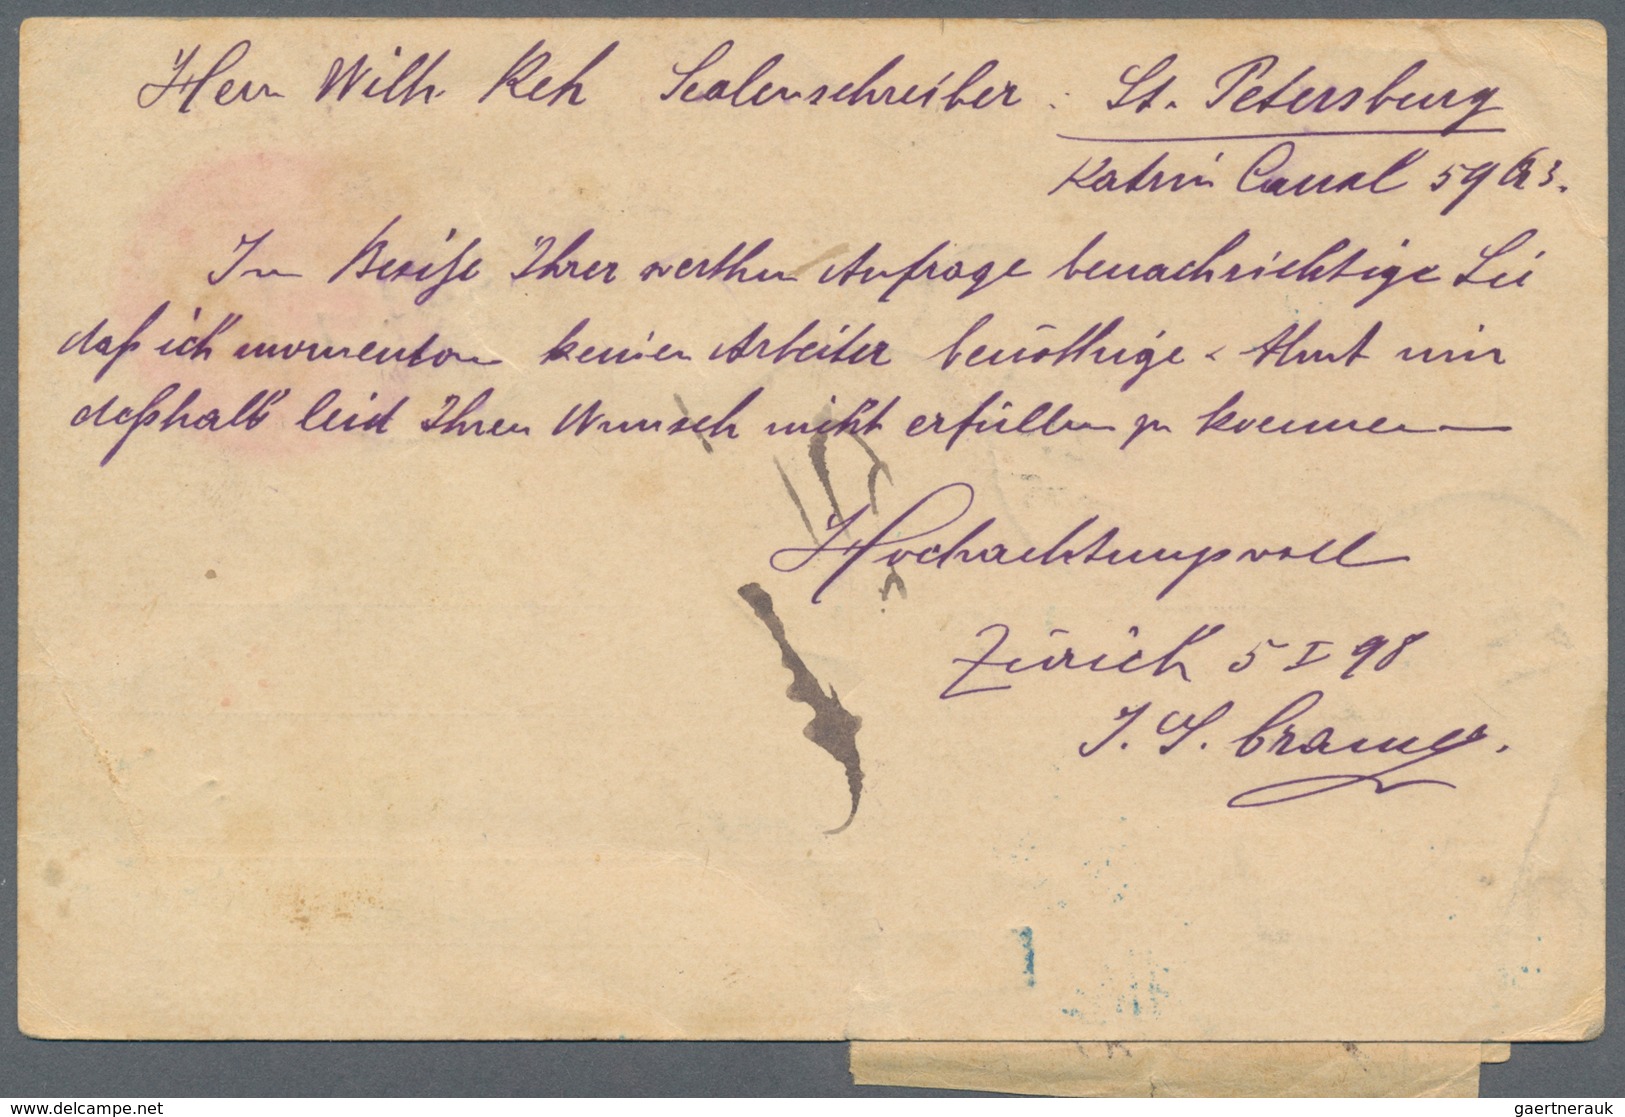 Herr Wilh. Reh Scalenschreiber : St. Petersburg
Katrin Canal 59
In Besitze Ihrer werthen Anfrage benachrichtige Sie
daß ich momentan keinen Arbeiter benöthige. Thut mir
deßhalb leid Ihren Wunsch nicht erfüllen zu koennen
Hochachtungsvoll
Zürich 5 I 98
J. S. Cramer.
gaertnerauk © delcampe.net